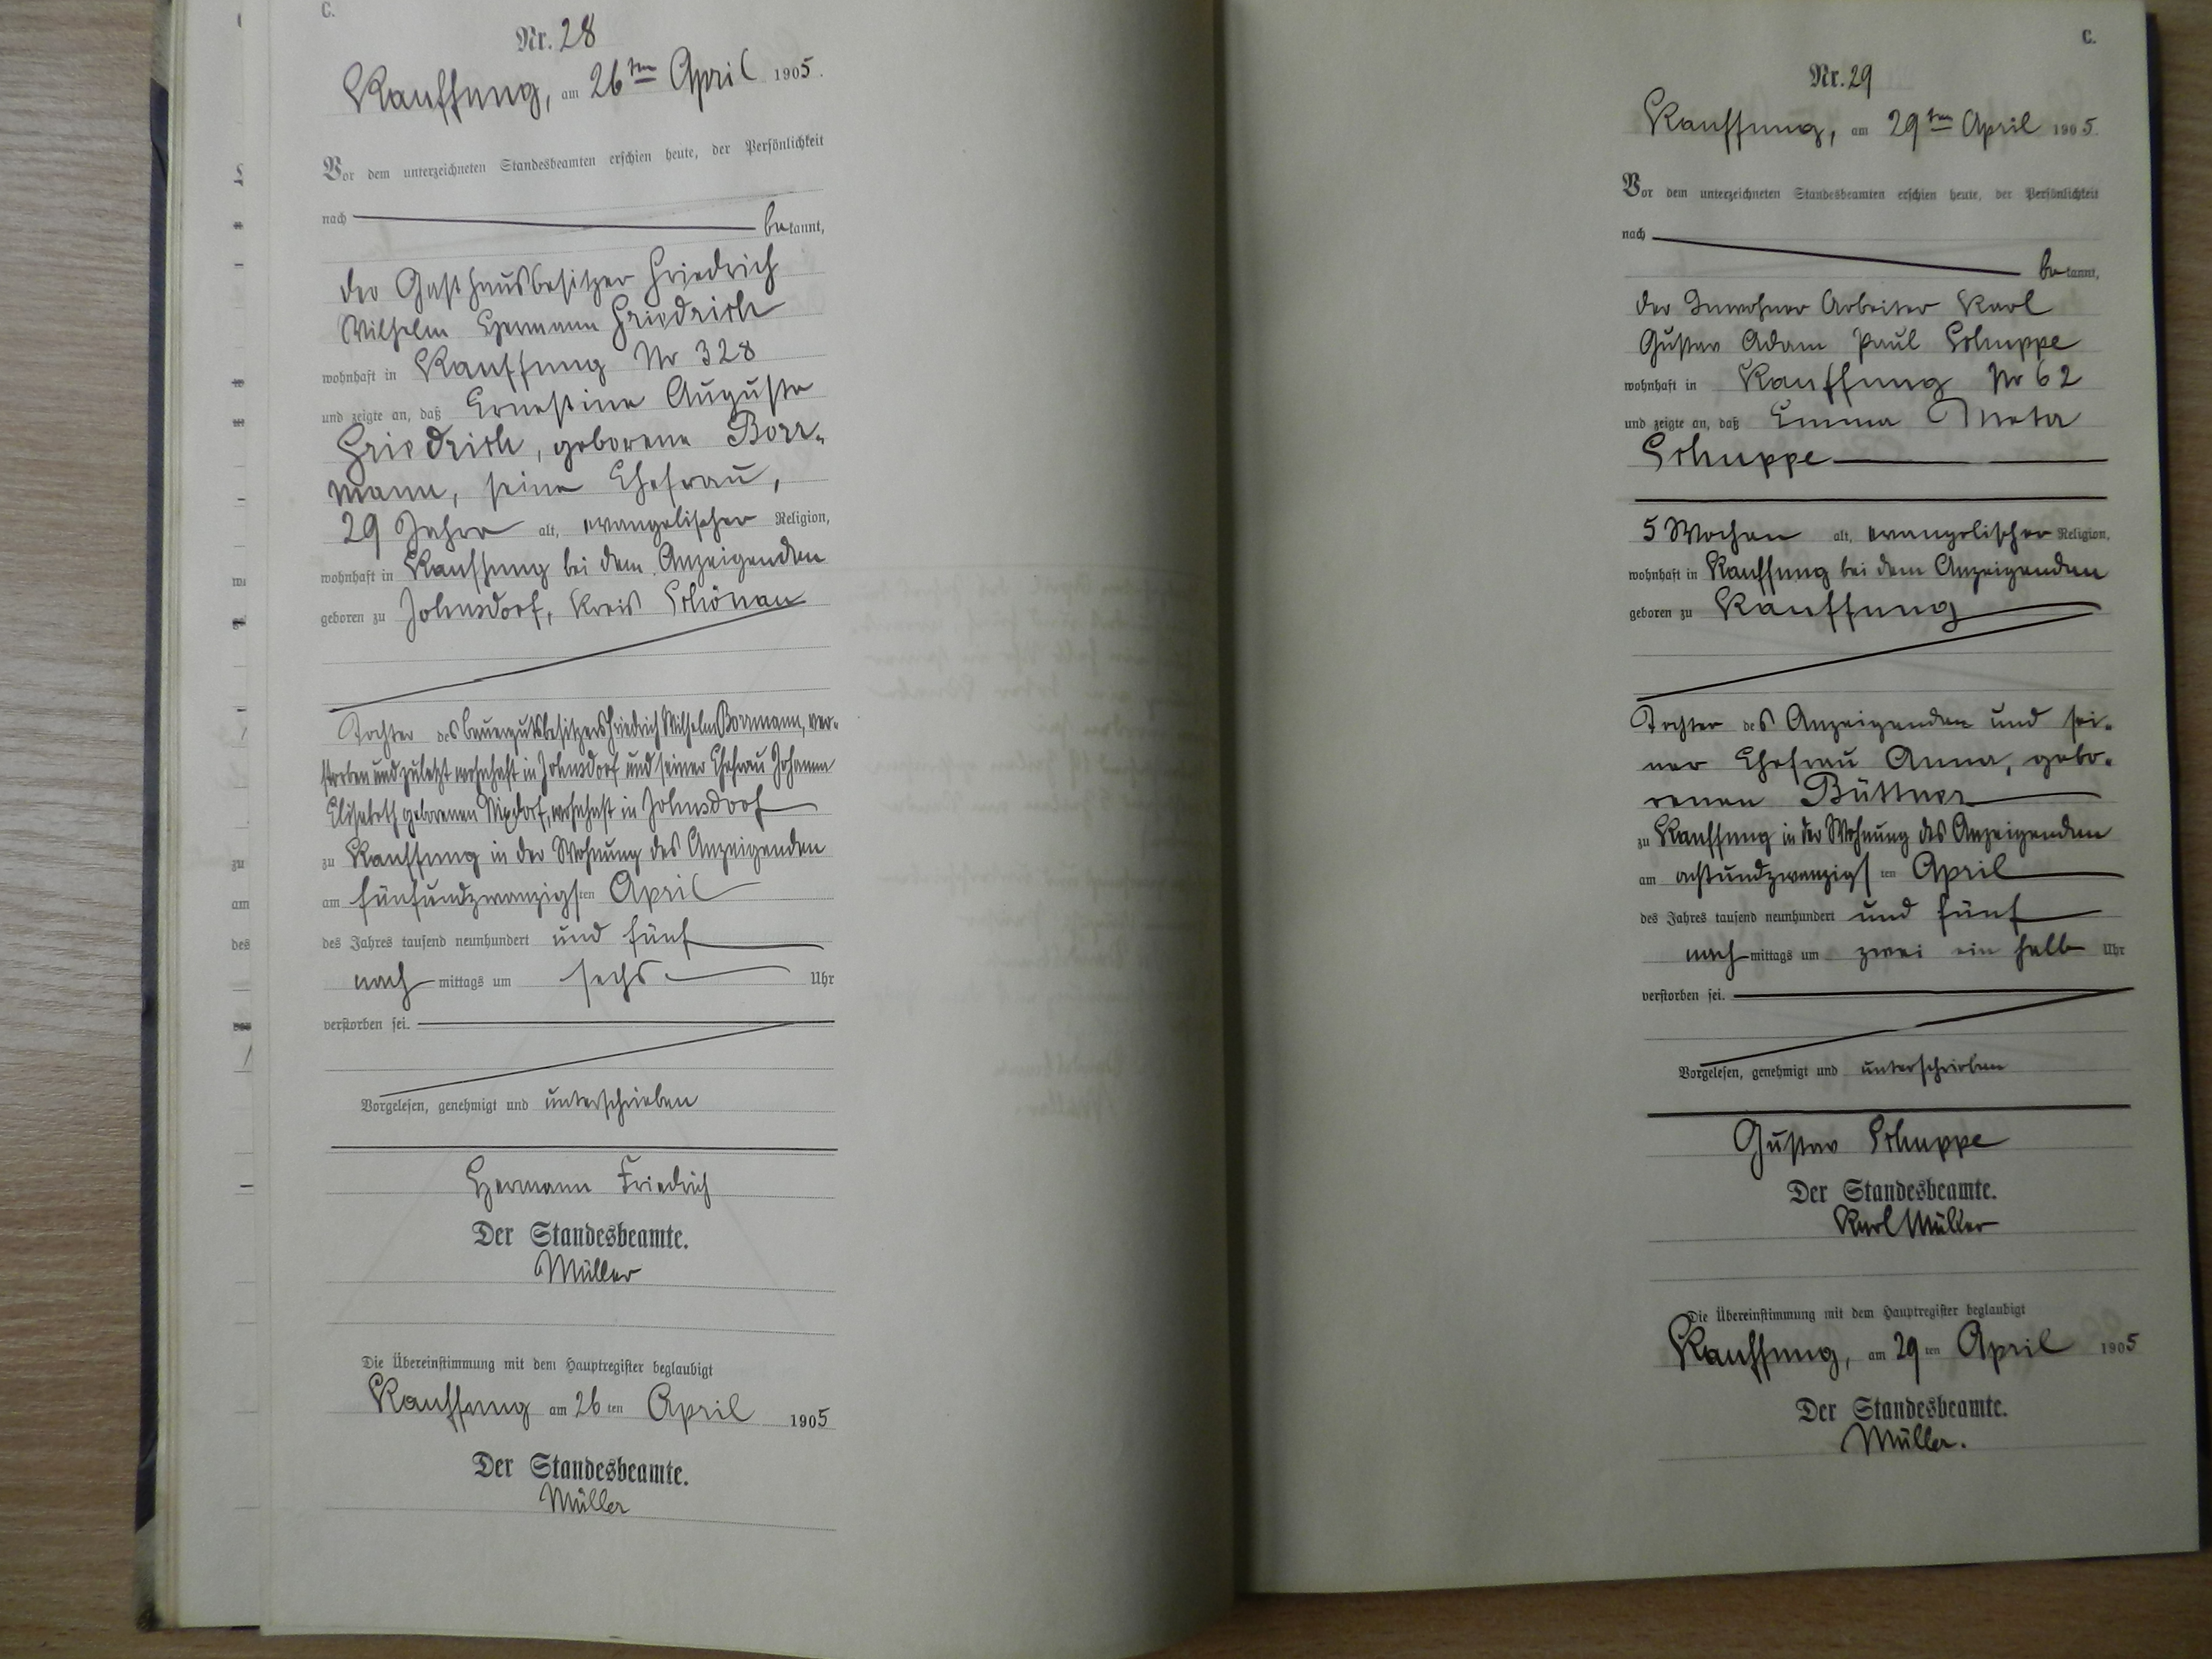 C.
Nr. 28
Kauffung, am 26ten April 1905.
Vor dem unterzeichneten Standesbeamten erschien heute, der Persönlichkeit
nach bekannt,
der Gasthausbesitzer Friedrich
Wilhelm Hermann Friedrich
wohnhaft in Kauffung Nr 328
und zeigte an, daß Ernestine Auguste
Friedrich, geborene Borr-
mann, seine Ehefrau,
29 Jahre alt, evangelischer Religion,
wohnhaft in Kauffung bei dem Anzeigenden
geboren zu Johnsdorf, Kreis Schönau
Tochter des Bauergutsbesitzers Friedrich Wilhelm Borrmann, ver-
storben und zuletzt wohnhaft in Johnsdorf und seiner Ehefrau Johanne
Elisabeth geborenen Nixdorf, wohnhaft in Johnsdorf
zu Kauffung in der Wohnung des Anzeigenden
am fünfundzwanzigsten April
des Jahres tausend neunhundert und fünf
nachmittags um sechs Uhr
verstorben sei.
Vorgelesen, genehmigt und unterschrieben
Hermann Friedrich
Der Standesbeamte.
Müller
Die Übereinstimmung mit dem Hauptregister beglaubigt
Kauffung am 26ten April 1905
Der Standesbeamte.
Müller
C.
Nr. 29
Kauffung, am 29ten April 1905.
Vor dem unterzeichneten Standesbeamten erschien heute, der Persönlichkeit
nach bekannt,
der Inwohner Arbeiter Karl
Gustav Adam Paul Schuppe
wohnhaft in Kauffung Nr 62
und zeigte an, daß Emma Meta
Schuppe
5 Wochen alt, evangelischer Religion,
wohnhaft in Kauffung bei dem Anzeigenden
geboren zu Kauffung
Tochter des Anzeigenden und sei-
ner Ehefrau Anna, gebo-
renen Büttner
zu Kauffung in der Wohnung des Anzeigenden
am achtundzwanzigsten April
des Jahres tausend neunhundert und fünf
nachmittags um zwei ein halb Uhr
verstorben sei.
Vorgelesen, genehmigt und unterschrieben
Gustav Schuppe
Der Standesbeamte.
Karl Müller
Die Übereinstimmung mit dem Hauptregister beglaubigt
Kauffung, am 29ten April 1905
Der Standesbeamte.
Müller.